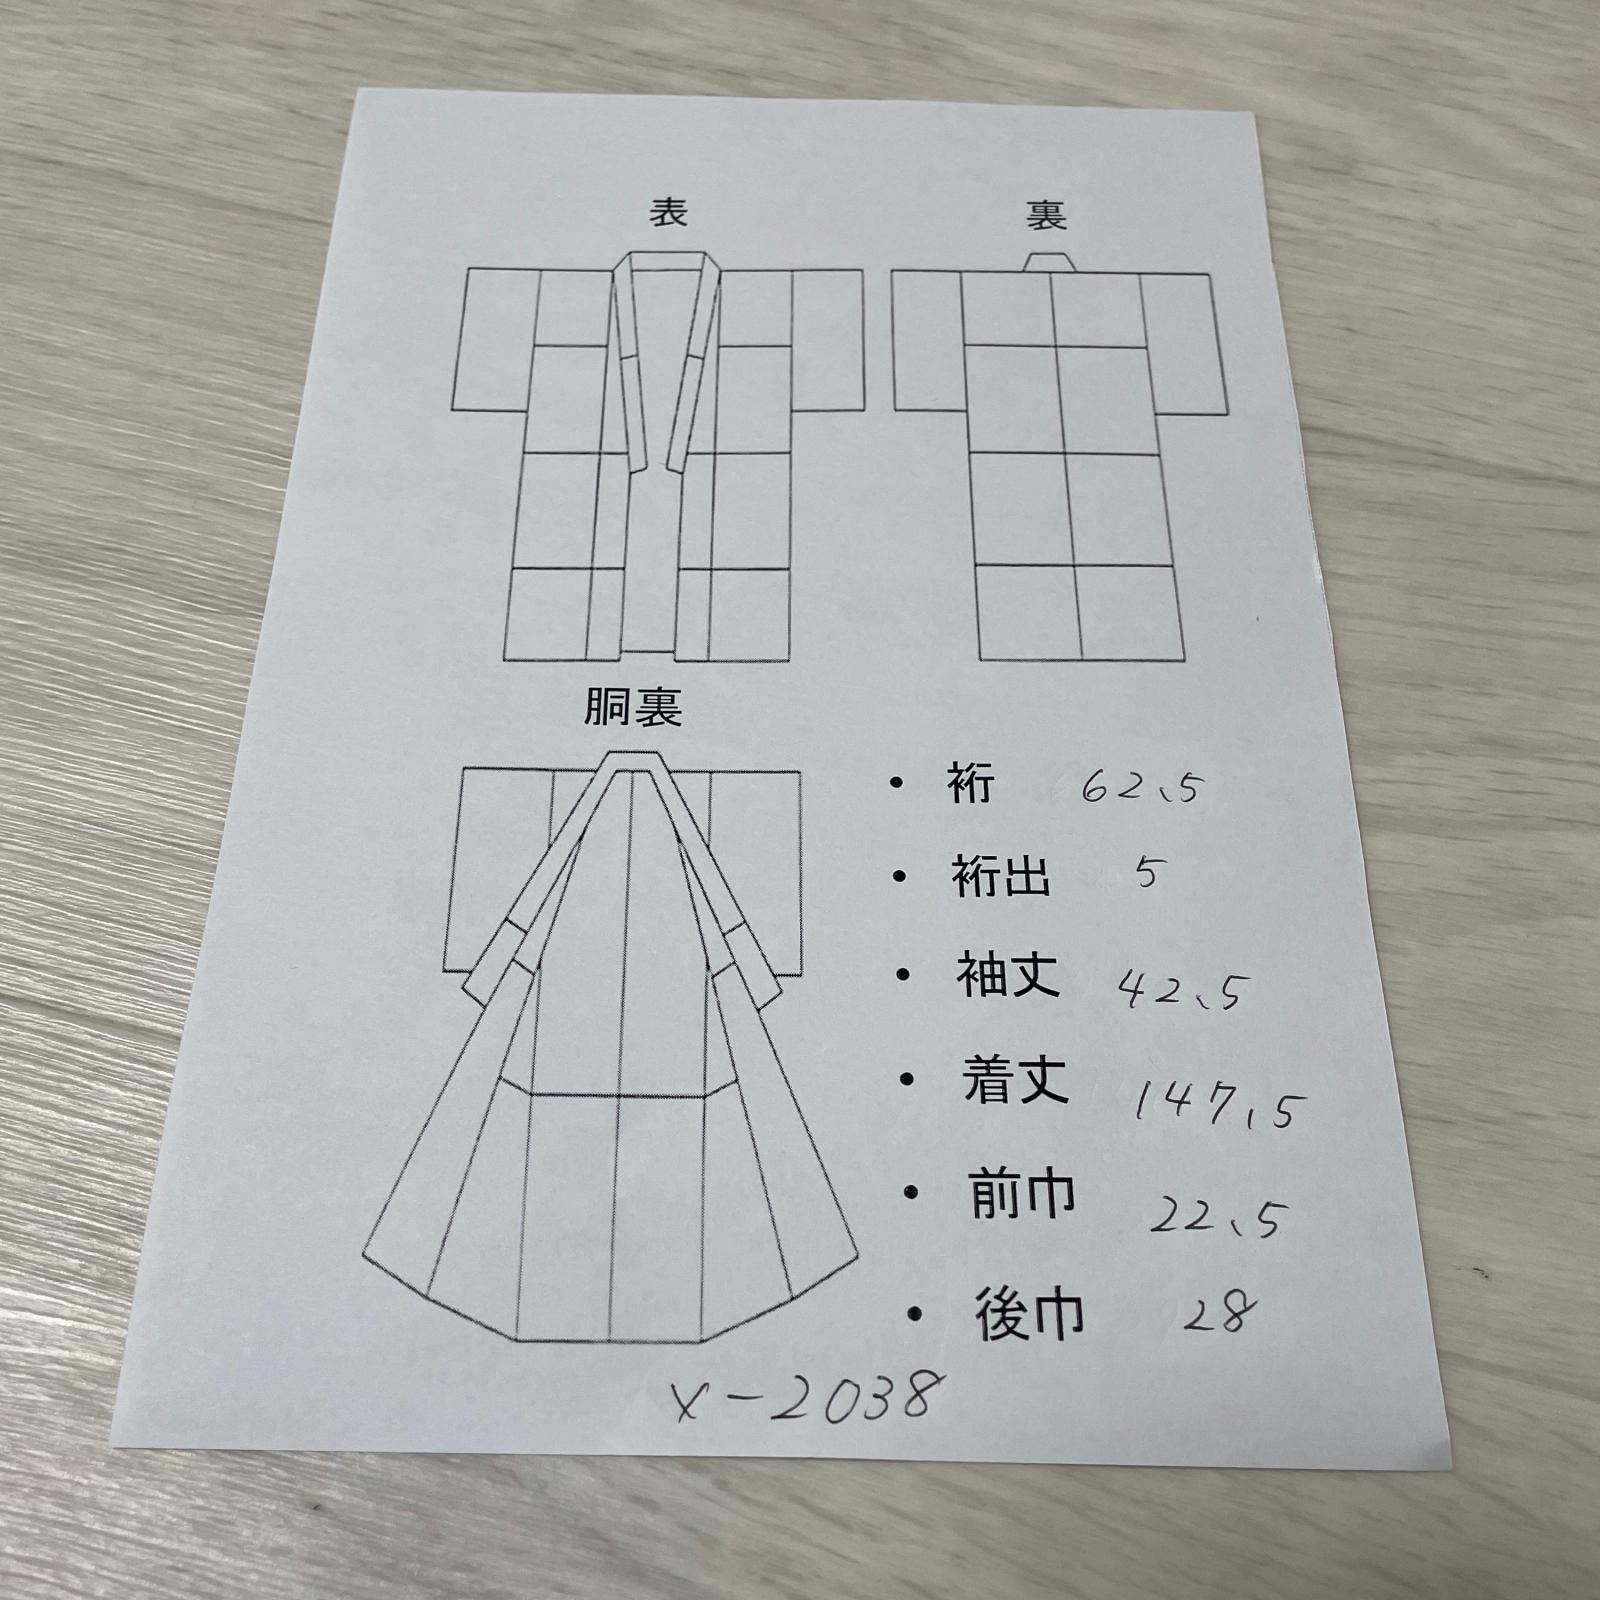 表
裏
胴裏
・ 裄 62、5
・ 裄出 5
・ 袖丈 42、5
・ 着丈 147、5
・ 前巾 22、5
・ 後巾 28
X-2038